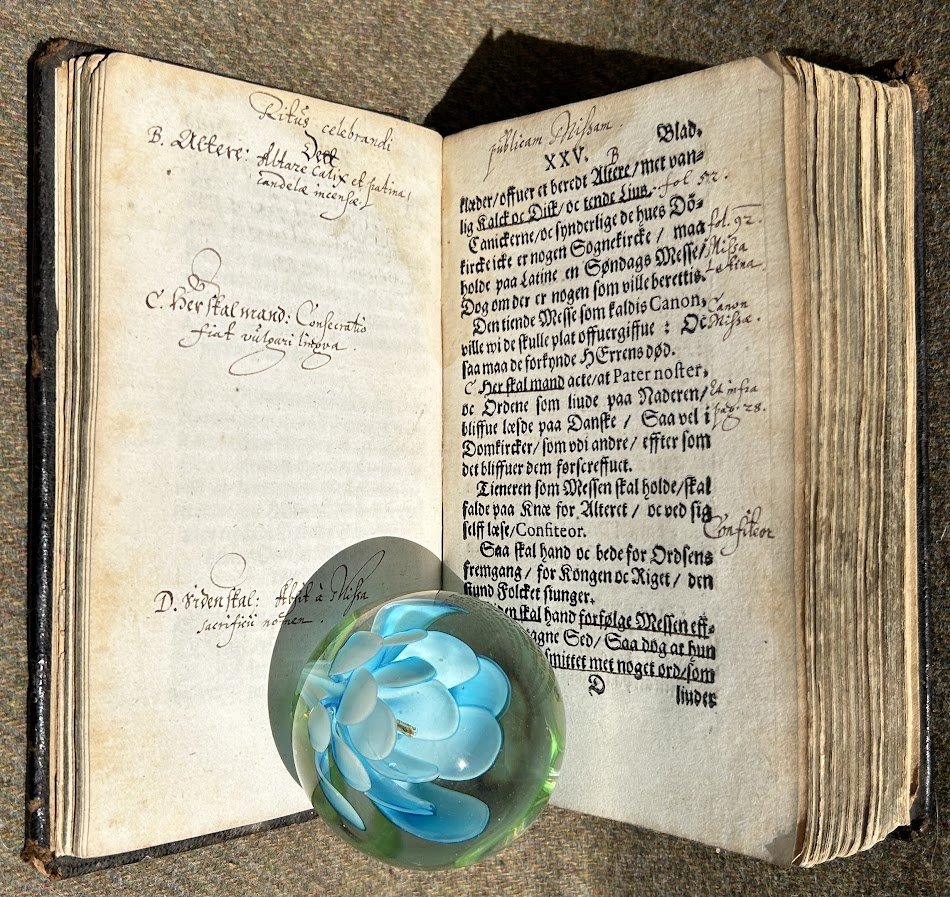 Ritus celebrandi
B. Altere: Altare Calix et patina,
candelæ incensæ.
C. Her skal mand: Consecratio
fiat vulgari lingva.
D. Siden skal: Absit à Missa
sacrificii nomen.
publicam Missam.
XXV. B Blad.
klæder/offuer et beredt Altere/met van⸗
lig Kalck oc Disk/oc tende Lius. fol 52.
Canickerne/oc synderlige de hues Dö⸗
kircke icke er nogen Sognekircke / maa fol. 92.
holde paa Latine en Søndags Messe/ Missa
Dog om der er nogen som ville berettis. Latina
Den tiende Messe som kaldis Canon, Canon
ville wi de skulle plat offuergiffue : Oc Missæ.
saa maa de forkynde HErrens død.
C Her skal mand acte/at Pater noster,
oc Ordene som liude paa Naderen/ Et infra
bliffue læsde paa Danske / Saa vel i pag. 28.
Domkircker/som vdi andre/ effter som
det bliffuer dem førscreffuet.
Tieneren som Messen skal holde/skal
falde paa Knæ for Alteret / oc ved sig
self læse/Confiteor. Confiteor
Saa skal hand oc bede for Ordsens
fremgang / for Kongen oc Riget / den
stund Folcket siunger.
skal hand forfølge Messen eff⸗
Sed/ Saa dog at hun
smittet met noget ord/som
D liudes